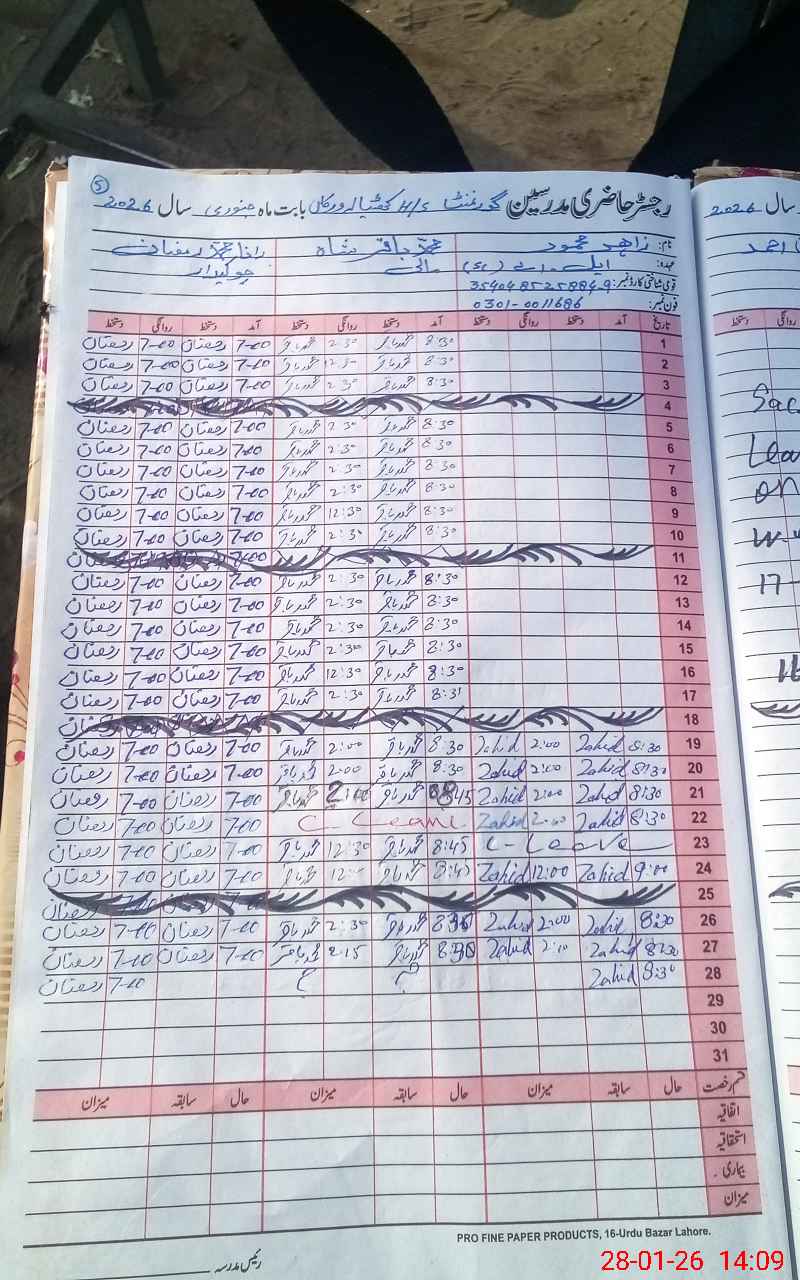 5
رجسٹر حاضری مدرسین گورنمنٹ H/S کھٹیالہ ورکاں بابت ماہ جنوری سال 2026
نام: زاھد محمود محمد باقر شاہ رانا محمد رمضان
عہدہ: ایل۔اے (sc) مالی چوکیدار
قومی شناختی کارڈ نمبر: 35404 8525884 9
فون نمبر: 0301-0011686
تاریخ آمد دستخط روانگی دستخط آمد دستخط روانگی دستخط آمد دستخط روانگی دستخط
1 8:30 محمد باقر 2:30 محمد باقر 7-00 رمضان 7-00 رمضان
2 8:30 محمد باقر 12:30 محمد باقر 7-00 رمضان 7-00 رمضان
3 8:30 محمد باقر 2:30 محمد باقر 7-00 رمضان 7-00 رمضان
4
5 8:30 محمد باقر 2:30 محمد باقر 7-00 رمضان 7-00 رمضان
6 8:30 محمد باقر 2:30 محمد باقر 7-00 رمضان 7-00 رمضان
7 8:30 محمد باقر 2:30 محمد باقر 7-00 رمضان 7-00 رمضان
8 8:30 محمد باقر 2:30 محمد باقر 7-00 رمضان 7-00 رمضان
9 8:30 محمد باقر 12:30 محمد باقر 7-00 رمضان 7-00 رمضان
10 8:30 محمد باقر 2:30 محمد باقر 7-00 رمضان 7-00 رمضان
11
12 8:30 محمد باقر 2:30 محمد باقر 7-00 رمضان 7-00 رمضان
13 8:30 محمد باقر 2:30 محمد باقر 7-00 رمضان 7-00 رمضان
14 8:30 محمد باقر 2:30 محمد باقر 7-00 رمضان 7-00 رمضان
15 8:30 محمد باقر 2:30 محمد باقر 7-00 رمضان 7-00 رمضان
16 8:30 محمد باقر 12:30 محمد باقر 7-00 رمضان 7-00 رمضان
17 8:31 محمد باقر 2:30 محمد باقر 7-00 رمضان 7-00 رمضان
18
19 8:30 Zahid 2:00 Zahid 8:30 محمد باقر 2:00 محمد باقر 7-00 رمضان 7-00 رمضان
20 8:30 Zahid 2:00 Zahid 8:30 محمد باقر 2:00 محمد باقر 7-00 رمضان 7-00 رمضان
21 8:30 Zahid 2:00 Zahid 8:45 محمد باقر 2:00 محمد باقر 7-00 رمضان 7-00 رمضان
22 8:30 Zahid 2:00 Zahid C-Leave 7-00 رمضان 7-00 رمضان
23 C-Leave 8:45 محمد باقر 12:30 محمد باقر 7-00 رمضان 7-00 رمضان
24 9:00 Zahid 12:00 Zahid 8:45 محمد باقر محمد باقر 7-00 رمضان 7-00 رمضان
25
26 8:30 Zahid 2:00 Zahid محمد باقر 2:30 محمد باقر 7-00 رمضان 7-00 رمضان
27 8:30 Zahid 2:10 Zahid 8:30 محمد باقر 2:15 محمد باقر 7-00 رمضان 7-00 رمضان
28 8:30 Zahid 7-00 رمضان
29
30
31
قسم رخصت حال سابقہ میزان حال سابقہ میزان حال سابقہ میزان
اتفاقیہ
استحقاقیہ
بیماری
میزان
PRO FINE PAPER PRODUCTS, 16-Urdu Bazar Lahore.
رئیس مدرسہ
سال 2026
احمد
روانگی دستخط
on
17-
28-01-26 14:09